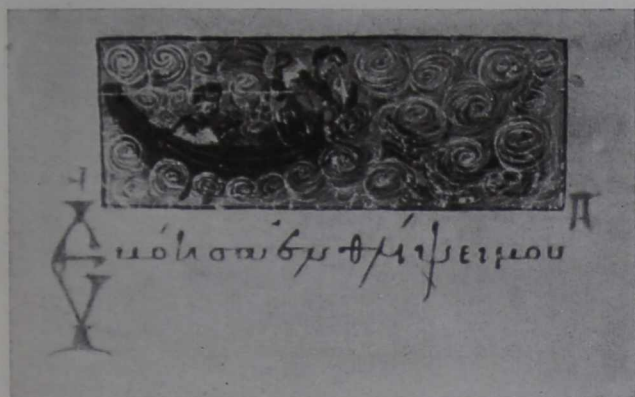 Εβόησα ἐν θλίψει μου